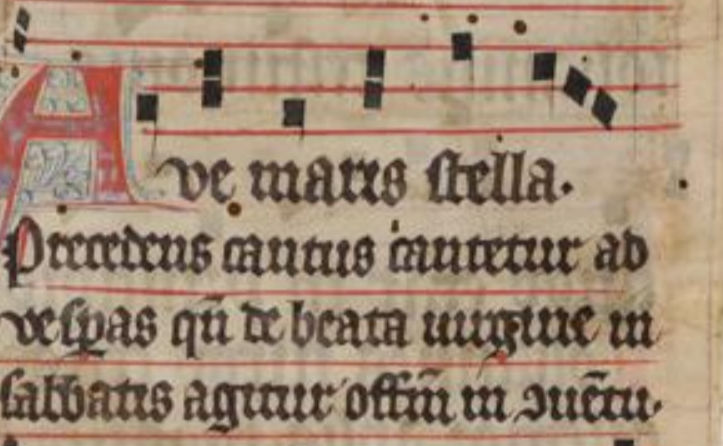 Ave maris stella.
Precedens cantus cantetur ad
vesꝑas qñ de beata uirgine in
sabbatis agitur offm̄ in ꝯuētu.